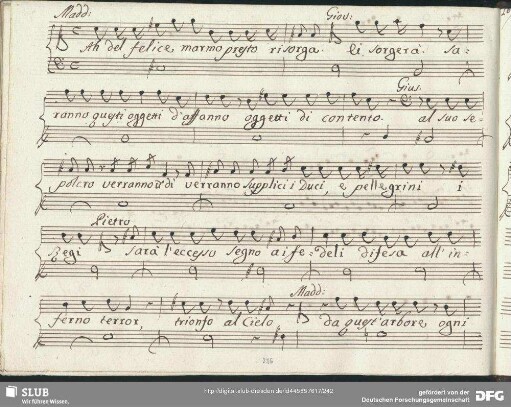 Madd: Giov:
Ah del felice marmo presto risorga. Ei sorgerà. Sa-
Gius.
ranno questi oggetti d'affanno oggetti di contento. al suo se-
polcro verranno i dì verranno supplici i Duci, e pellegrini i
Pietro
Regi sarà l'eccesso segno ai fe-deli difesa all' in-
Madd:
ferno terror, trionfo al Cielo. da quest' arbore, ogni
SLUB
Wir führen Wissen.
http://digital.slub-dresden.de/id445357617/242
gefördert von der
Deutschen Forschungsgemeinschaft
DFG